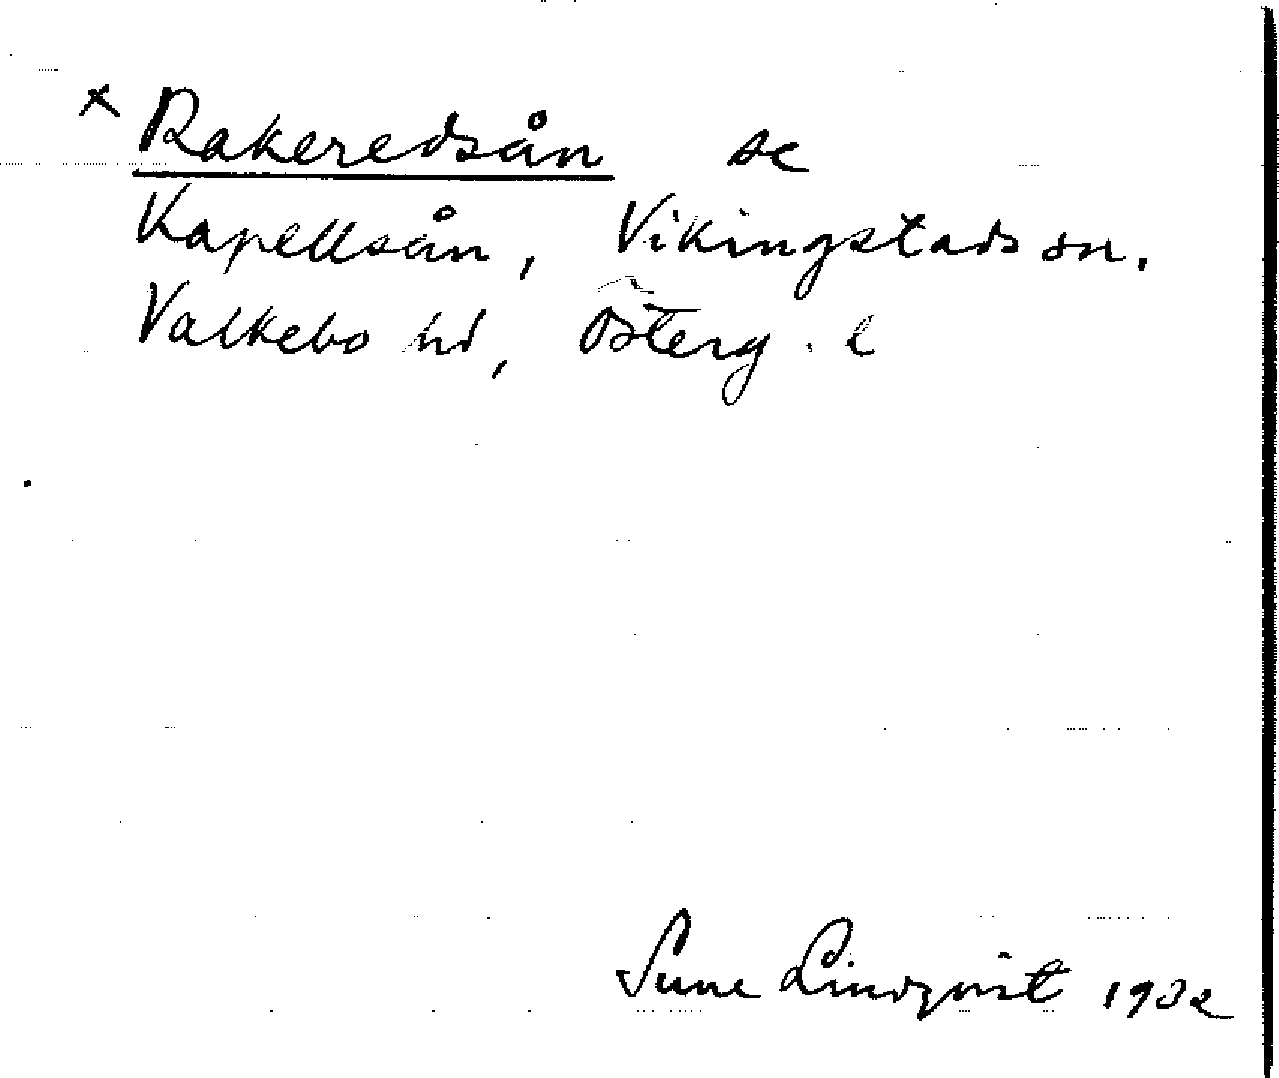 x Rakeredsån se
Kapellsån, Vikingstads sn.
Valkebo hd, Österg. l
Sune Lindqvist 1932